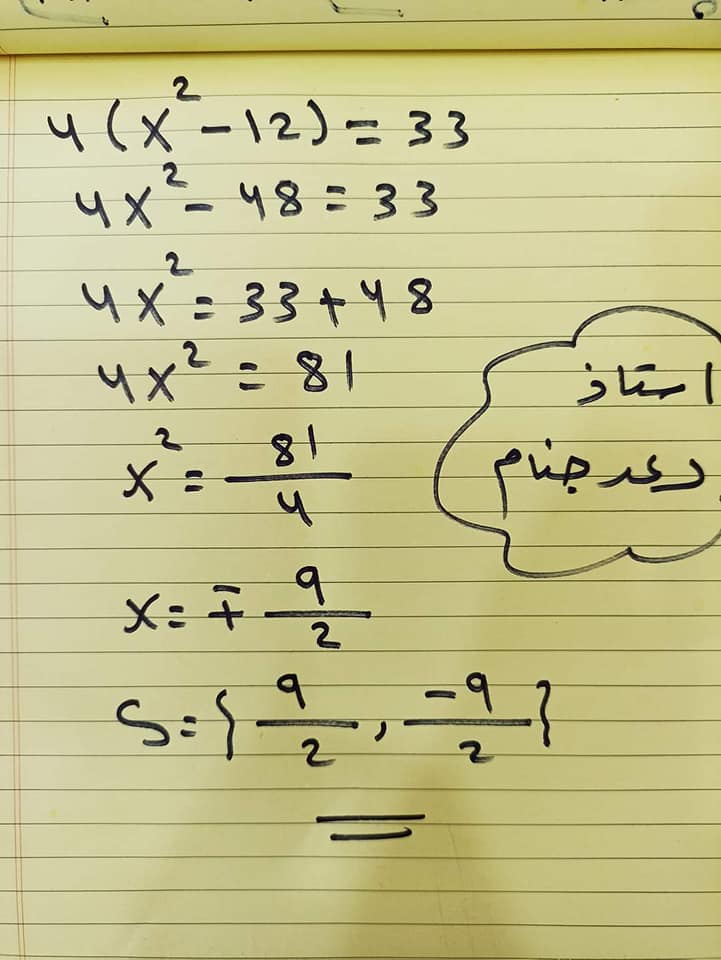 4(x² - 12) = 33
4x² - 48 = 33
4x² = 33 + 48
4x² = 81
x² = 81/4
x = ∓ 9/2
S = { 9/2 , -9/2 }
استاذ
رعد جنام